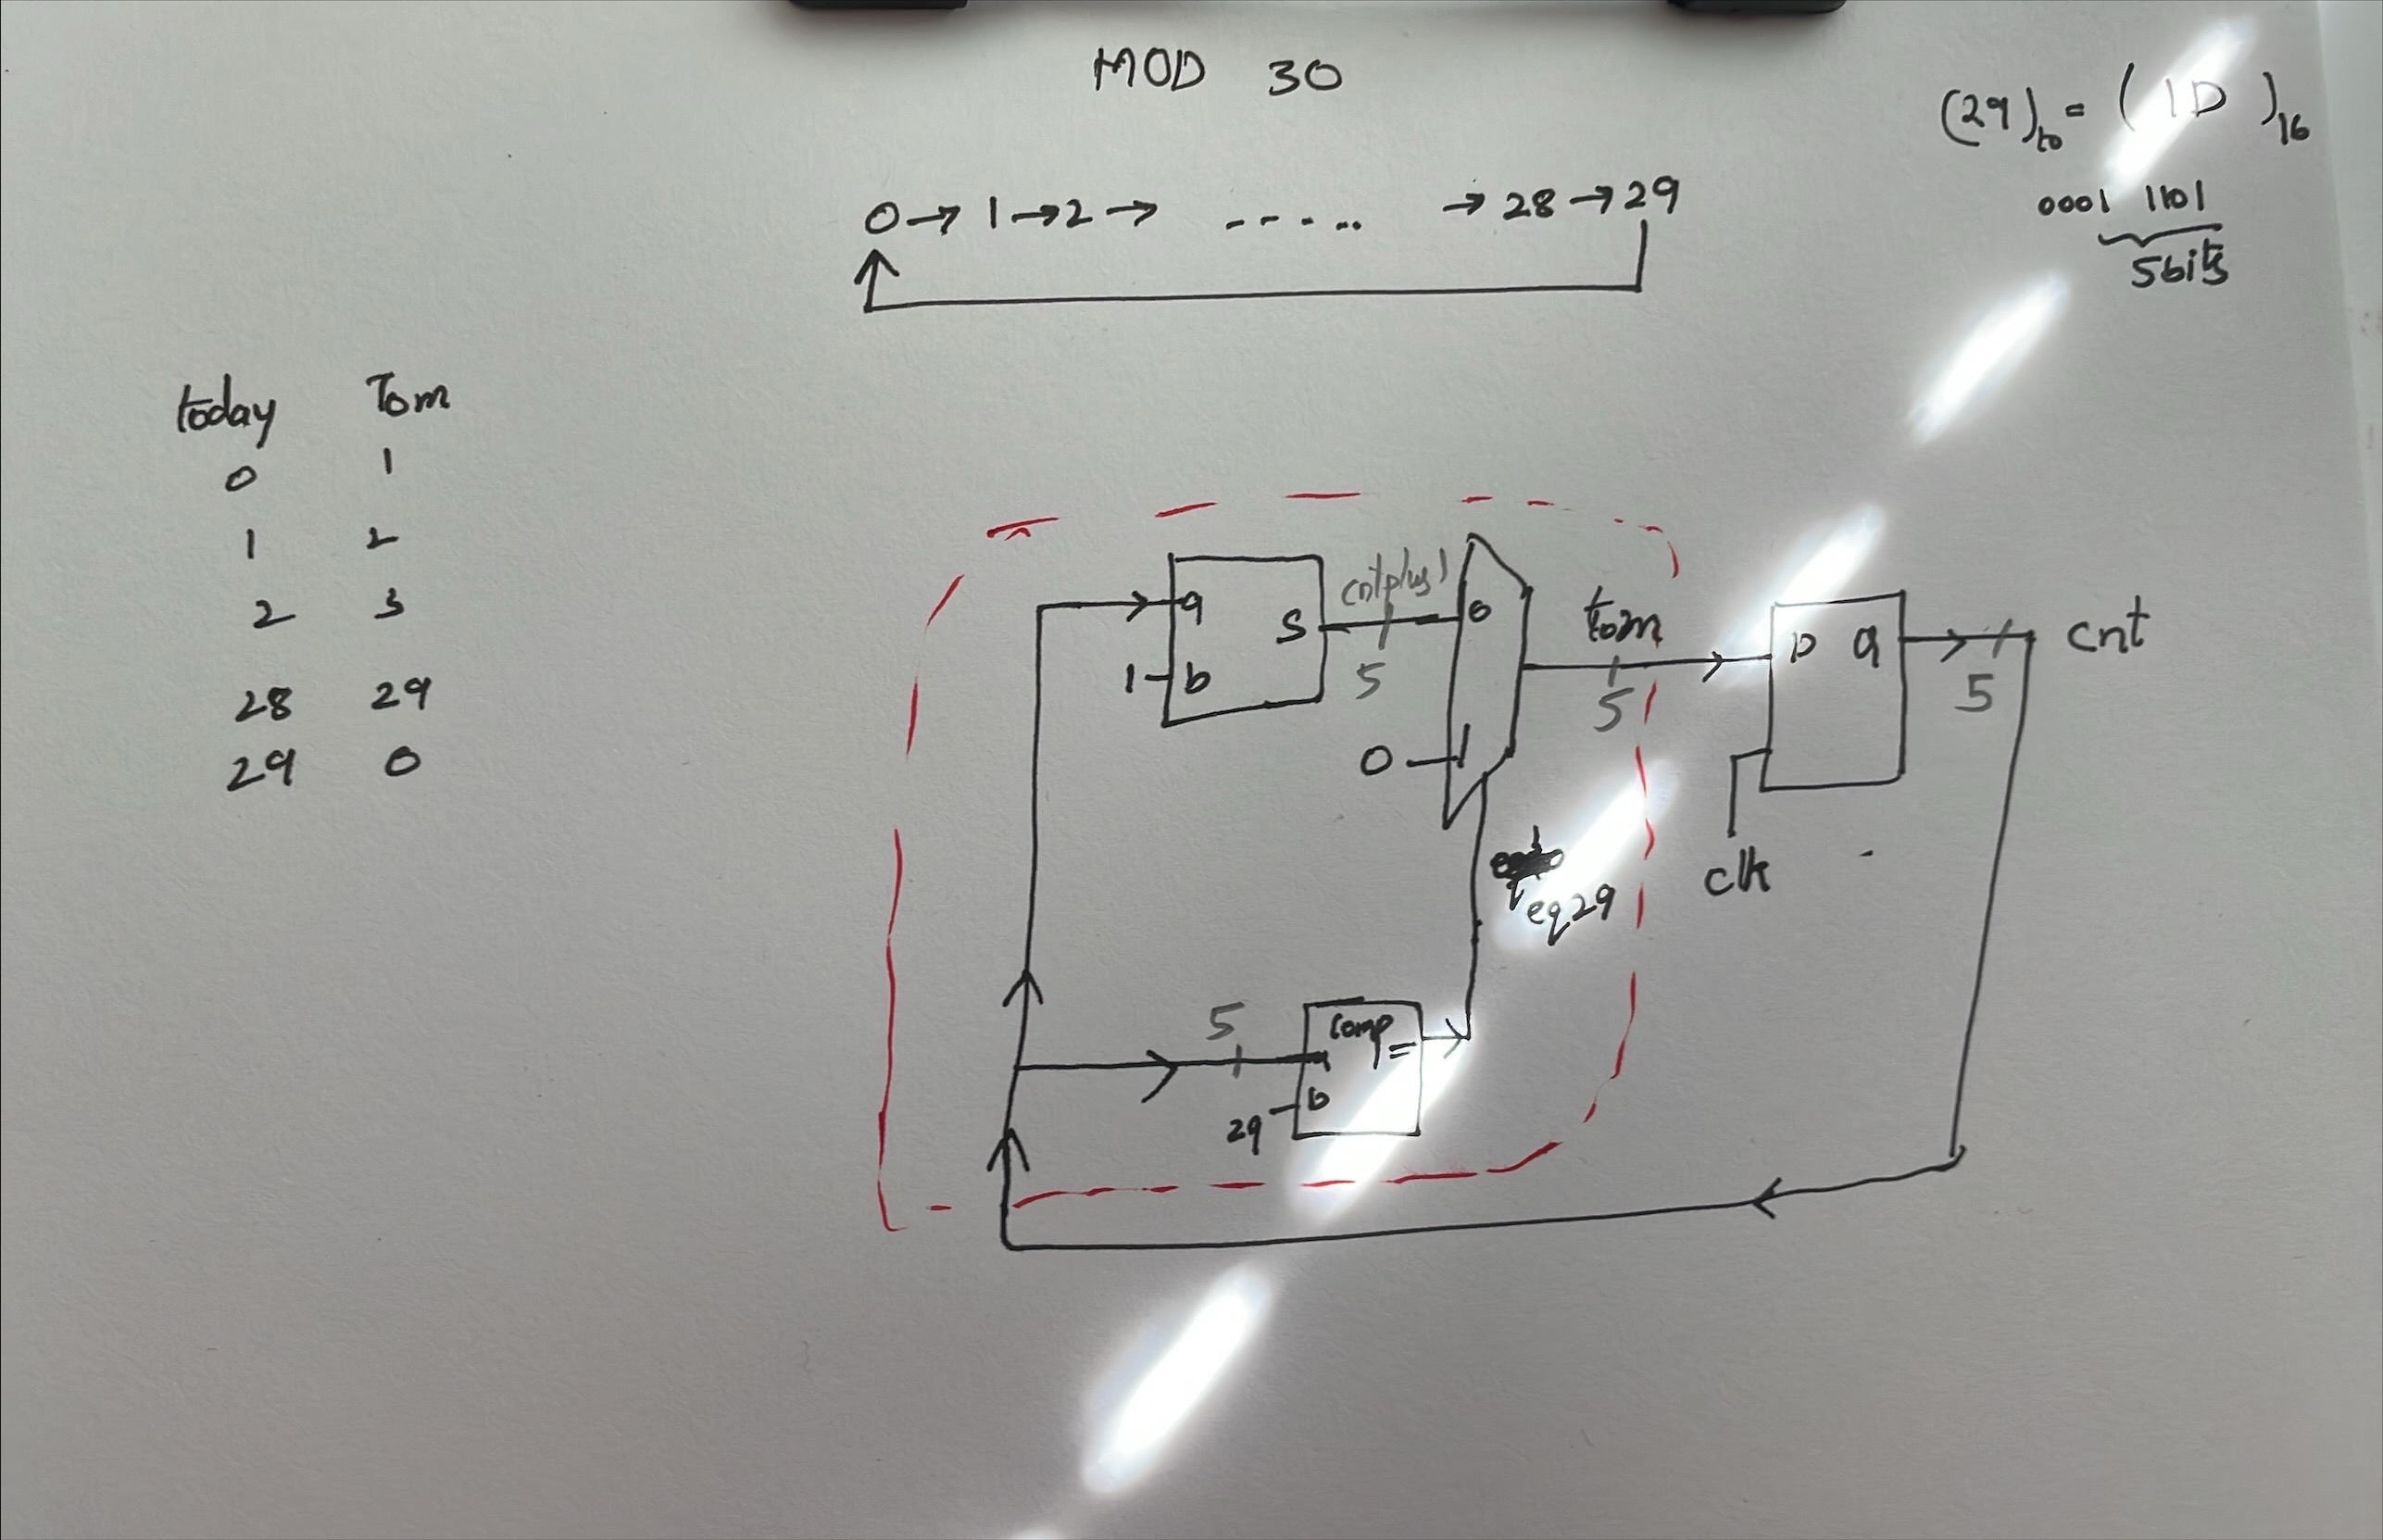 MOD 30
(29)10 = (1D)16
0001 1101
5bits
0 → 1 → 2 → ----.. → 28 → 29
today Tom
0 1
1 2
2 3
28 29
29 0
a
S
1
b
cntplus1
5
0
0
1
tom
5
D Q
clk
cnt
5
eq29
5
comp
=
29
b